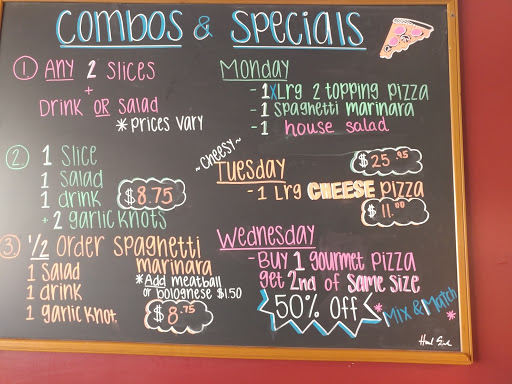 Combos & Specials
① Any 2 slices
+
Drink OR salad
*prices vary
② 1 slice
1 salad
1 drink
+ 2 garlic knots
$8.75
③ 1/2 order spaghetti
marinara
1 salad
1 drink
1 garlic knot
*Add meatball
or bolognese $1.50
$8.75
Monday
- 1x Lrg 2 topping pizza
- 1 spaghetti marinara
- 1 house salad
$25.95
~Cheesy~
Tuesday
- 1 Lrg CHEESE pizza
$11.00
Wednesday
- Buy 1 gourmet pizza
get 2nd of same size
50% off
*Mix & Match*